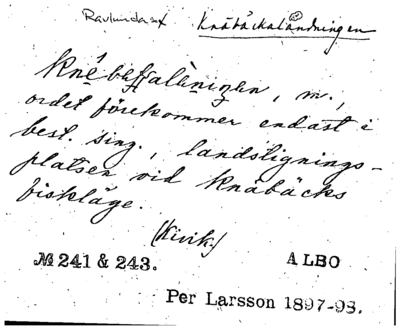 Ravlunda sn Knäbäckaländningen
m.,
ordet förekommer endast i
best. sing., landstignings-
platsen vid Knäbäcks
fiskläge.
(Kivik.)
№ 241 & 243. ALBO
Per Larsson 1897-98.